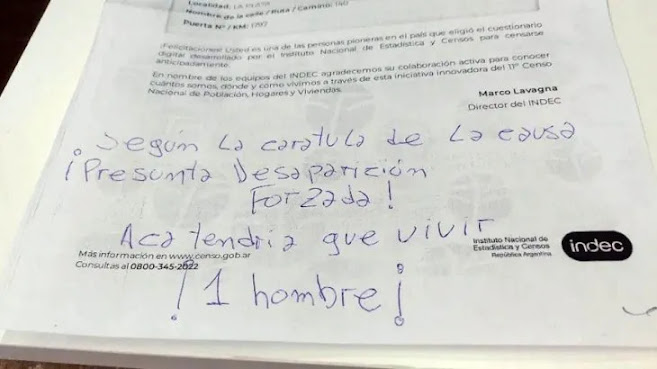 Localidad: LA PLATA
Nombre de la calle / Ruta / Camino: 140
Puerta N° / KM:
¡Felicitaciones! Usted es una de las personas pioneras en el país que eligió el cuestionario
digital desarrollado por el Instituto Nacional de Estadística y Censos para censarse
anticipadamente.
En nombre de los equipos del INDEC agradecemos su colaboración activa para conocer
cuántos somos, dónde y cómo vivimos a través de esta iniciativa innovadora del 11° Censo
Nacional de Población, Hogares y Viviendas.
Marco Lavagna
Director del INDEC
¡Según La caratula de La causa
¡Presunta Desaparición
Forzada!
Aca tendria que vivir
Instituto Nacional de
Estadística y Censos
República Argentina
indec
Más información en www.censo.gob.ar
Consultas al 0800-345-2022
¡1 hombre¡